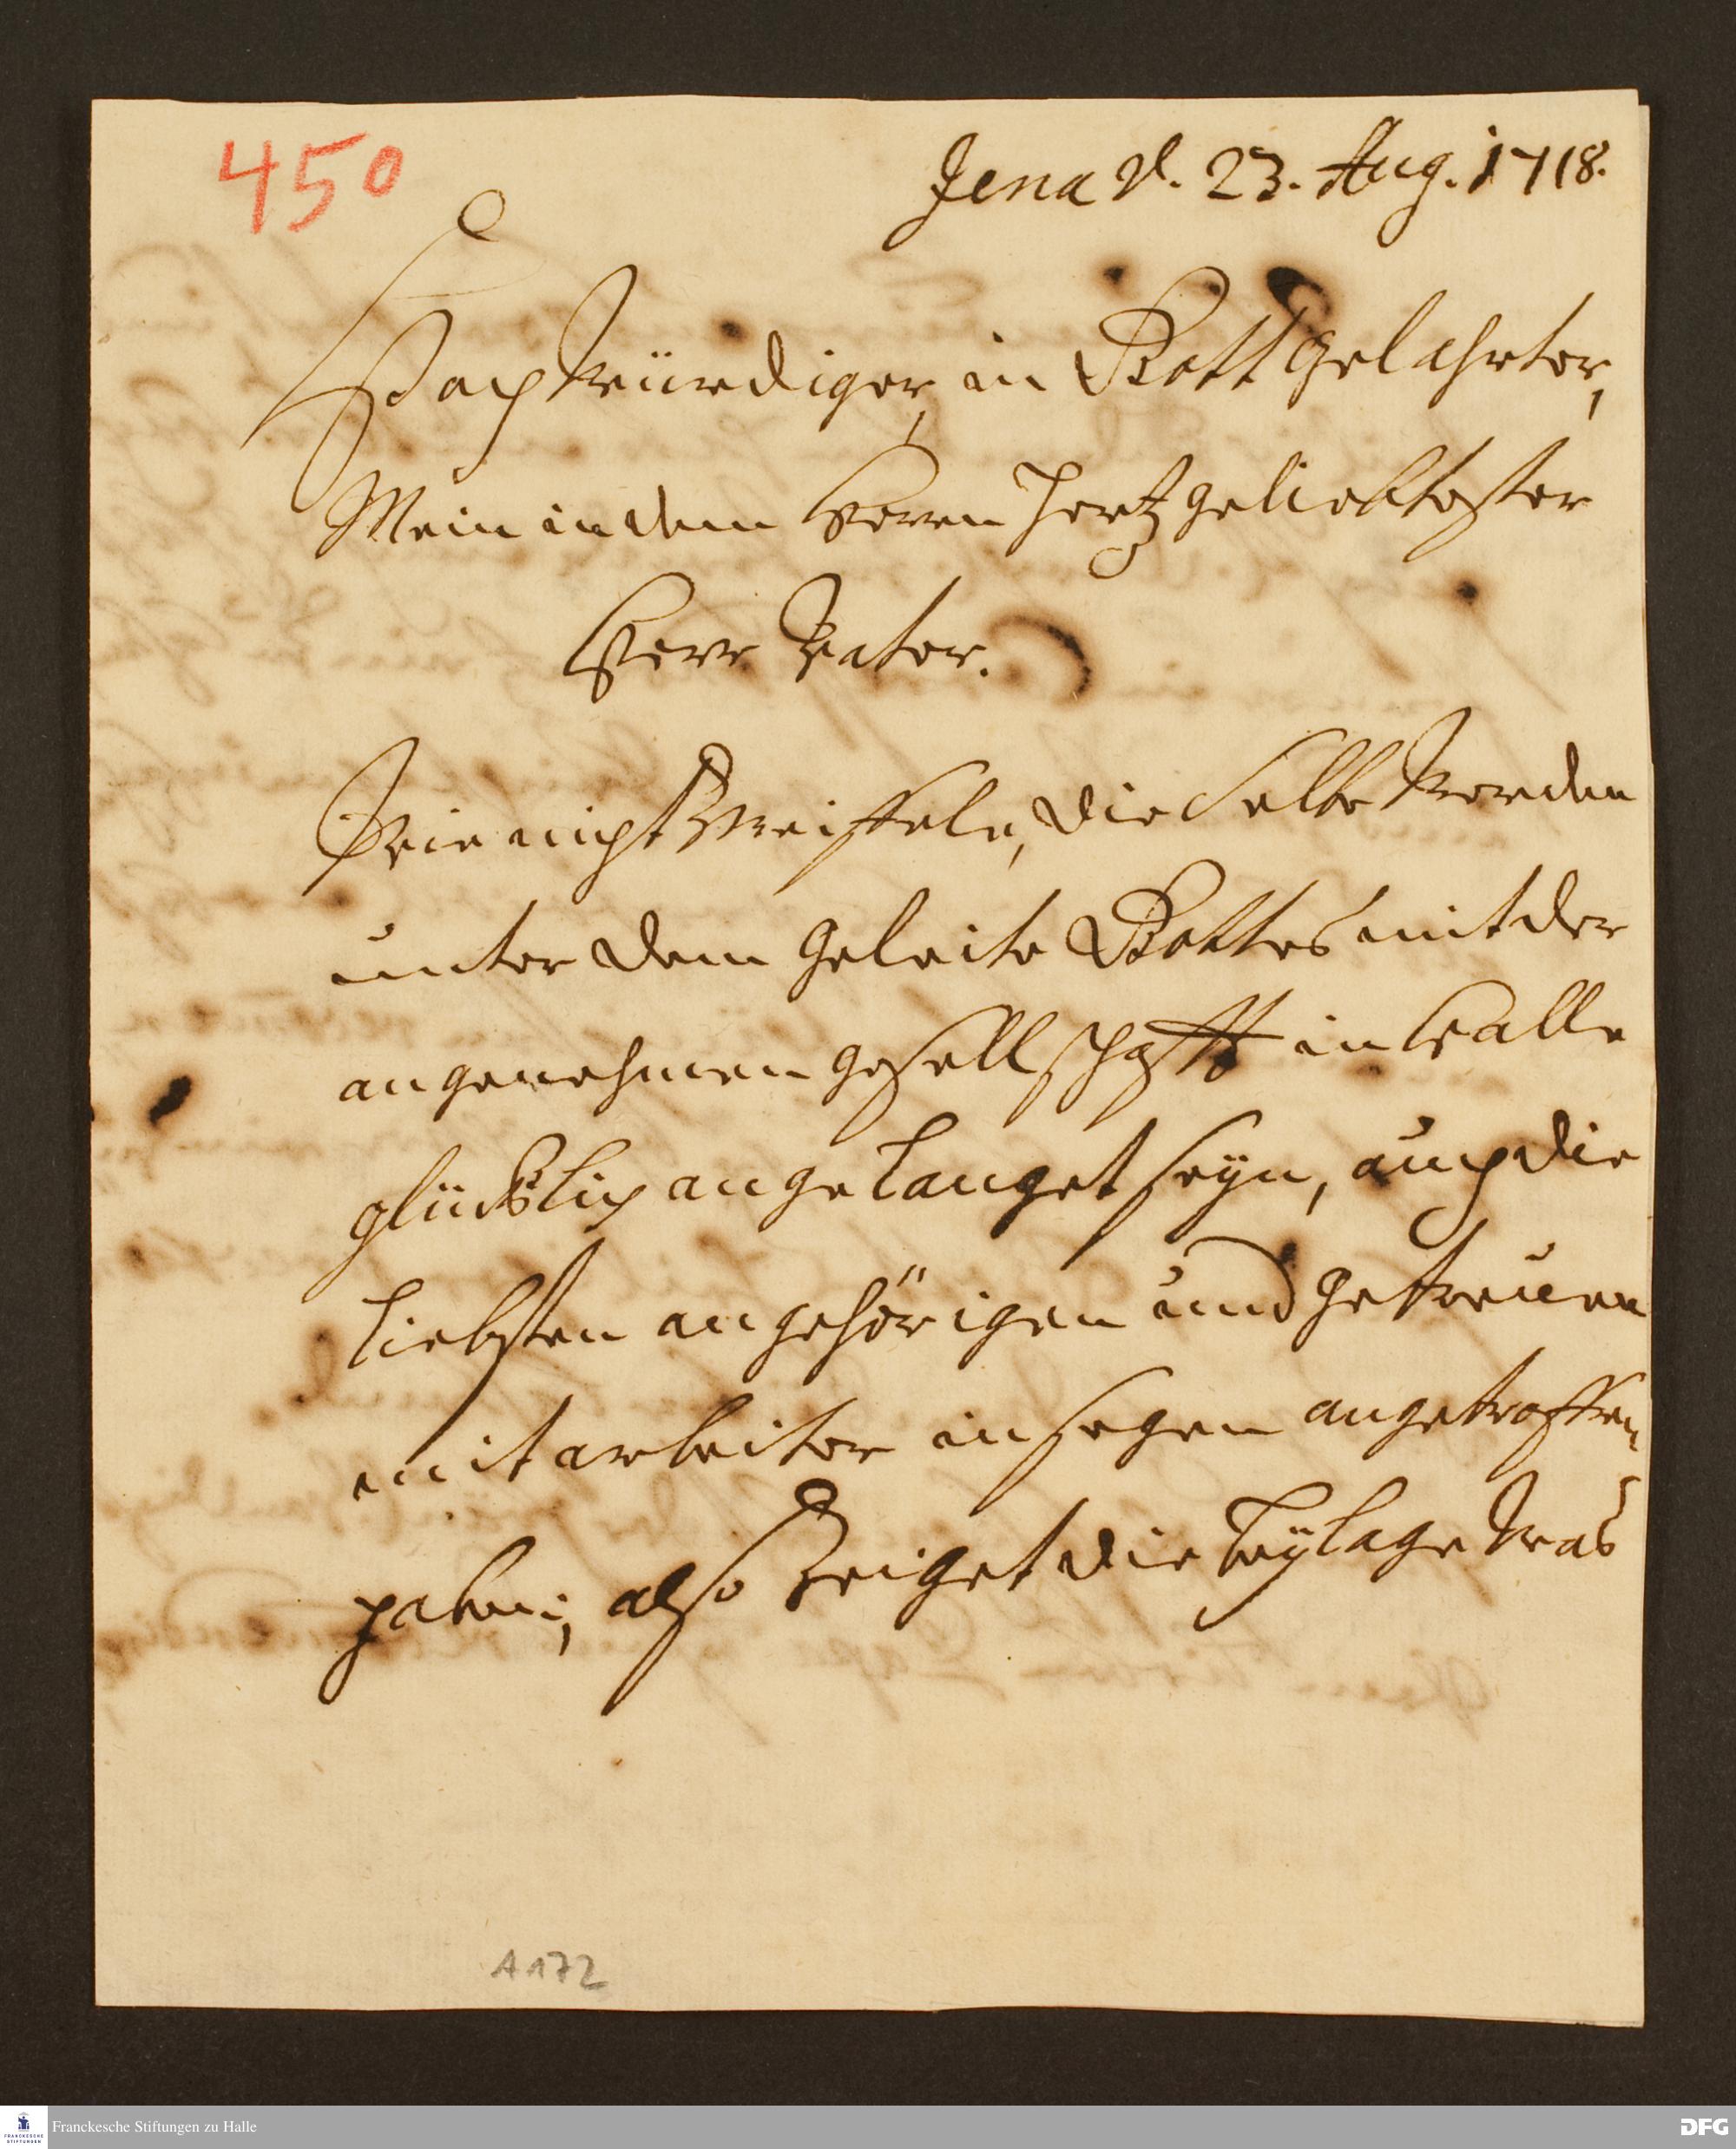 450
Jena d. 23. Aug. 1718.
HochWürdiger, in Gott gelahrter,
Mein in dem Herren Hertzgeliebtester
Herr Vater.
Wie nicht Zweiffele, dieselbe Werden
unter dem geleite Gottes mit der
angenehmen gesellschafft in Halle
glücklich angelanget seyn, auch die
liebsten angehörigen und getreuen
mitarbeiter in segen angetroffen
haben; also Zeiget die beylage Was
A172
Franckesche Stiftungen zu Halle
FRANCKESCHE
STIFTUNGEN
DFG